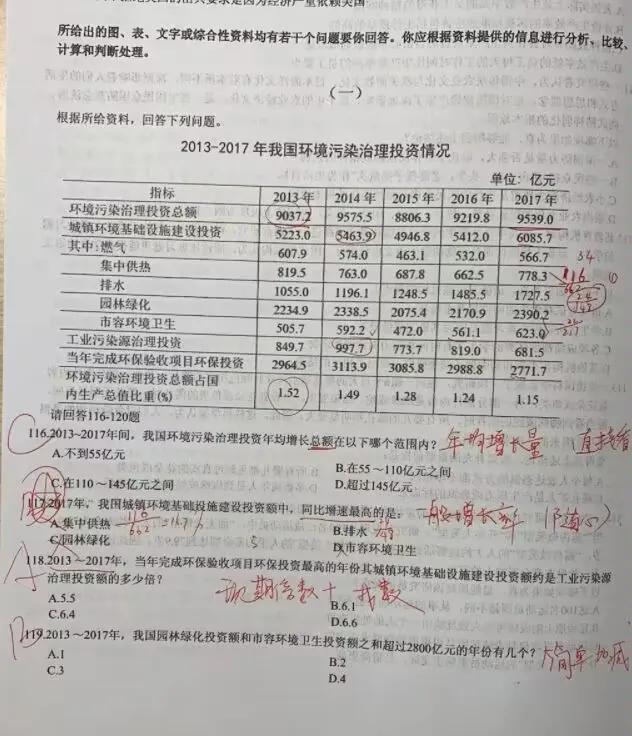 所给出的图、表、文字或综合性资料均有若干个问题要你回答。你应根据资料提供的信息进行分析、比较、
计算和判断处理。
(一)
根据所给资料，回答下列问题。
2013-2017 年我国环境污染治理投资情况
单位：亿元
指标 2013 年 2014 年 2015 年 2016 年 2017 年
环境污染治理投资总额 9037.2 9575.5 8806.3 9219.8 9539.0
城镇环境基础设施建设投资 5223.0 5463.9 4946.8 5412.0 6085.7
其中:燃气 607.9 574.0 463.1 532.0 566.7
集中供热 819.5 763.0 687.8 662.5 778.3
排水 1055.0 1196.1 1248.5 1485.5 1727.5
园林绿化 2234.9 2338.5 2075.4 2170.9 2390.2
市容环境卫生 505.7 592.2 472.0 561.1 623.0
工业污染源治理投资 849.7 997.7 773.7 819.0 681.5
当年完成环保验收项目环保投资 2964.5 3113.9 3085.8 2988.8 2771.7
环境污染治理投资总额占国
内生产总值比重(%) 1.52 1.49 1.28 1.24 1.15
请回答116-120题
116.2013~2017年间，我国环境污染治理投资年均增长总额在以下哪个范围内？ 年均增长量
A.不到55亿元 B.在55～110亿元之间
C.在110～145亿元之间 D.超过145亿元
117.2017年，我国城镇环境基础设施建设投资额中，同比增速最高的是： 一般增长率
A.集中供热 B.排水
C.园林绿化 D.市容环境卫生
118.2013～2017年，当年完成环保验收项目环保投资最高的年份其城镇环境基础设施建设投资额约是工业污染源
治理投资额的多少倍？ 现期倍数+找数
A.5.5 B.6.1
C.6.4 D.6.6
119.2013～2017年，我国园林绿化投资额和市容环境卫生投资额之和超过2800亿元的年份有几个？ 简单加减
A.1 B.2
C.3 D.4